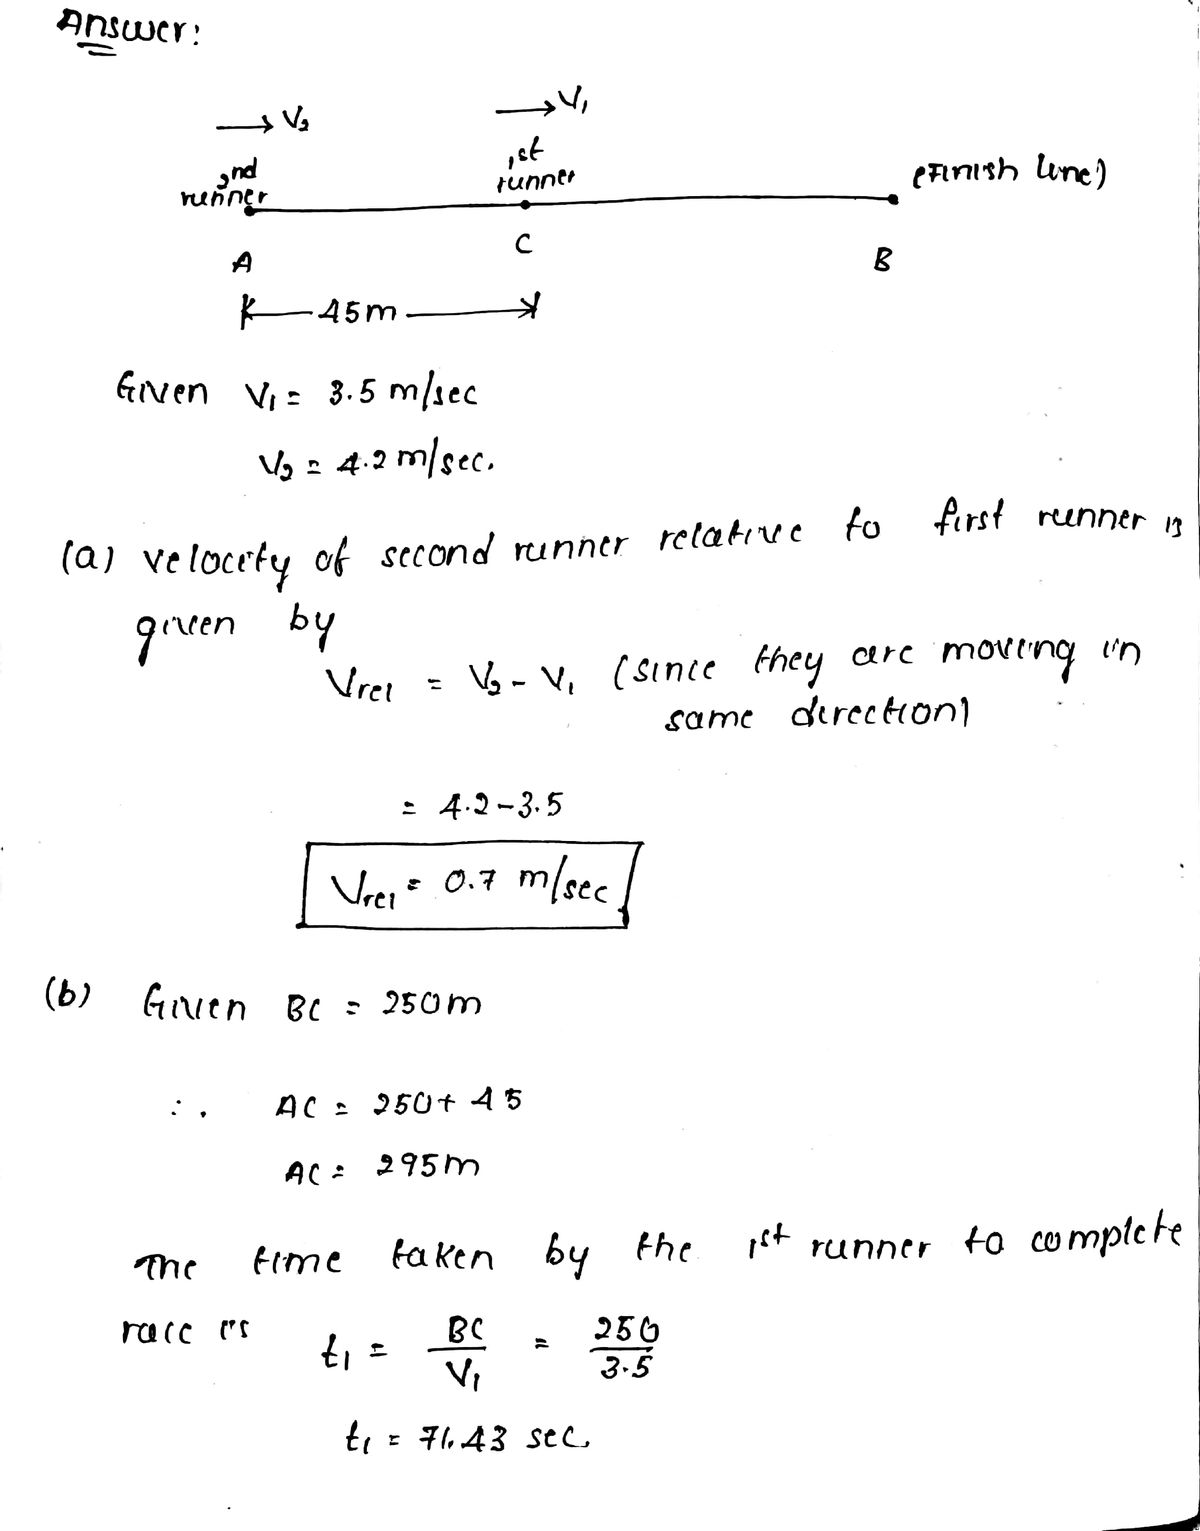 Answer:
→ V₂
→ V₁
2nd
runner
1st
runner
(Finish line)
A
C
B
45m
Given V₁ = 3.5 m/sec
V₂ = 4.2 m/sec.
(a) velocity of second runner relative to first runner is
given by
Vrel = V₂ - V₁ (since they are moving in
same direction)
= 4.2-3.5
Vrel = 0.7 m/sec
(b) Given BC = 250m
∴ AC = 250+45
AC = 295m
The time taken by the 1st runner to complete
race is
t₁ = BC/V₁ = 250/3.5
t₁ = 71.43 sec.